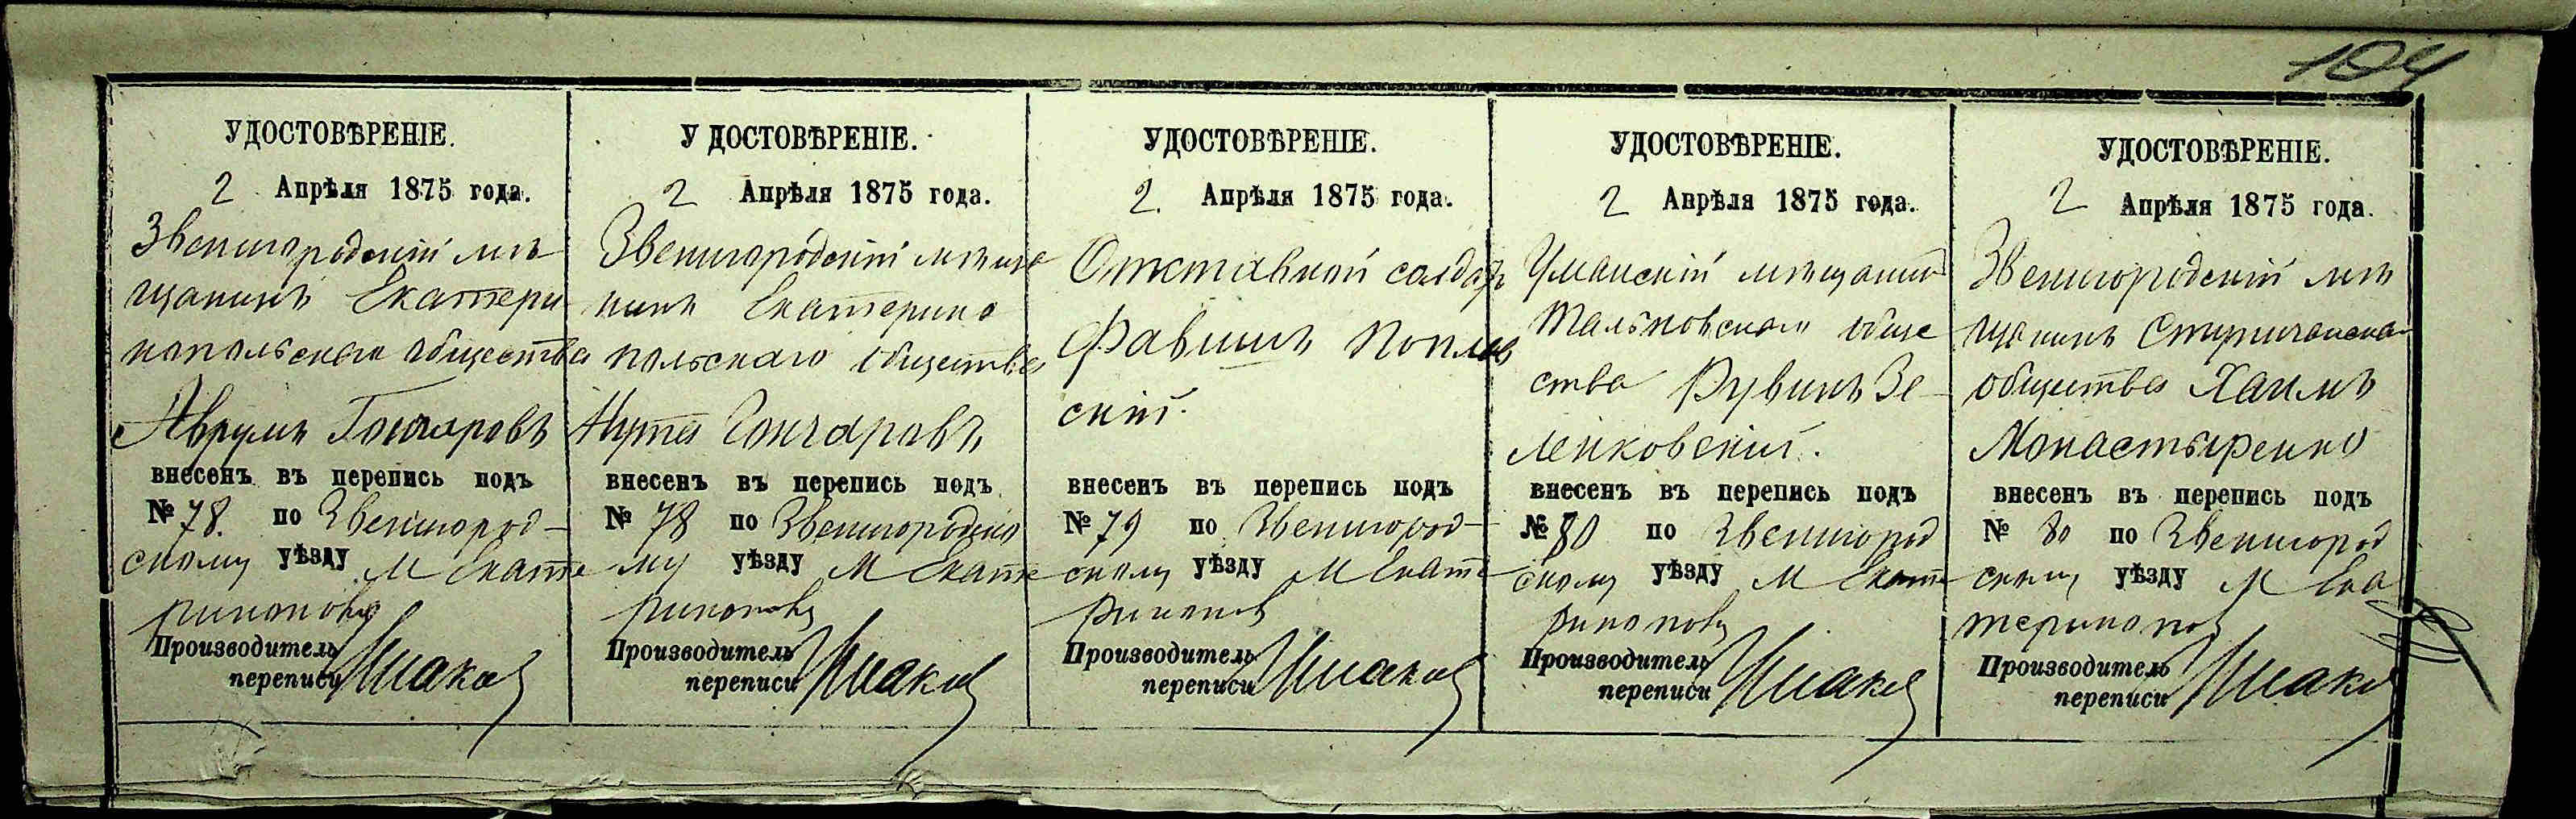 104
УДОСТОВѢРЕНІЕ.
2 Апрѣля 1875 года.
Звенигородскій мѣ
щанинъ Екатери
нопольскаго общества
Аврумъ Гончаровъ
внесенъ въ перепись подъ
№ 78. по Звенигород-
скому уѣзду М Екате
ринополь
Производитель
переписи
УДОСТОВѢРЕНІЕ.
2 Апрѣля 1875 года.
Звенигородскій мѣща
нинъ Екатерино
польскаго общества
Нута Гончаровъ
внесенъ въ перепись подъ
№ 78 по Звенигородско
му уѣзду М Екате
ринополь
Производитель
переписи
УДОСТОВѢРЕНІЕ.
2. Апрѣля 1875 года.
Отставной солдатъ
Поплав
скій.
внесенъ въ перепись подъ
№ 79 по Звенигород-
скому уѣзду М Екате
ринопол
Производитель
переписи
УДОСТОВѢРЕНІЕ.
2 Апрѣля 1875 года.
Уманскій мѣщанинъ
Тальновскаго обще
ства Рувинъ Зе-
ленковскій.
внесенъ въ перепись подъ
№ 80 по Звенигород
скому уѣзду М Екате
ринополь
Производитель
переписи
УДОСТОВѢРЕНІЕ.
2 Апрѣля 1875 года.
Звенигородскій мѣ
щанинъ
общества Хаимъ
Монастыренко
внесенъ въ перепись подъ
№ 80 по Звенигород
скому уѣзду М Ека
теринопол
Производитель
переписи